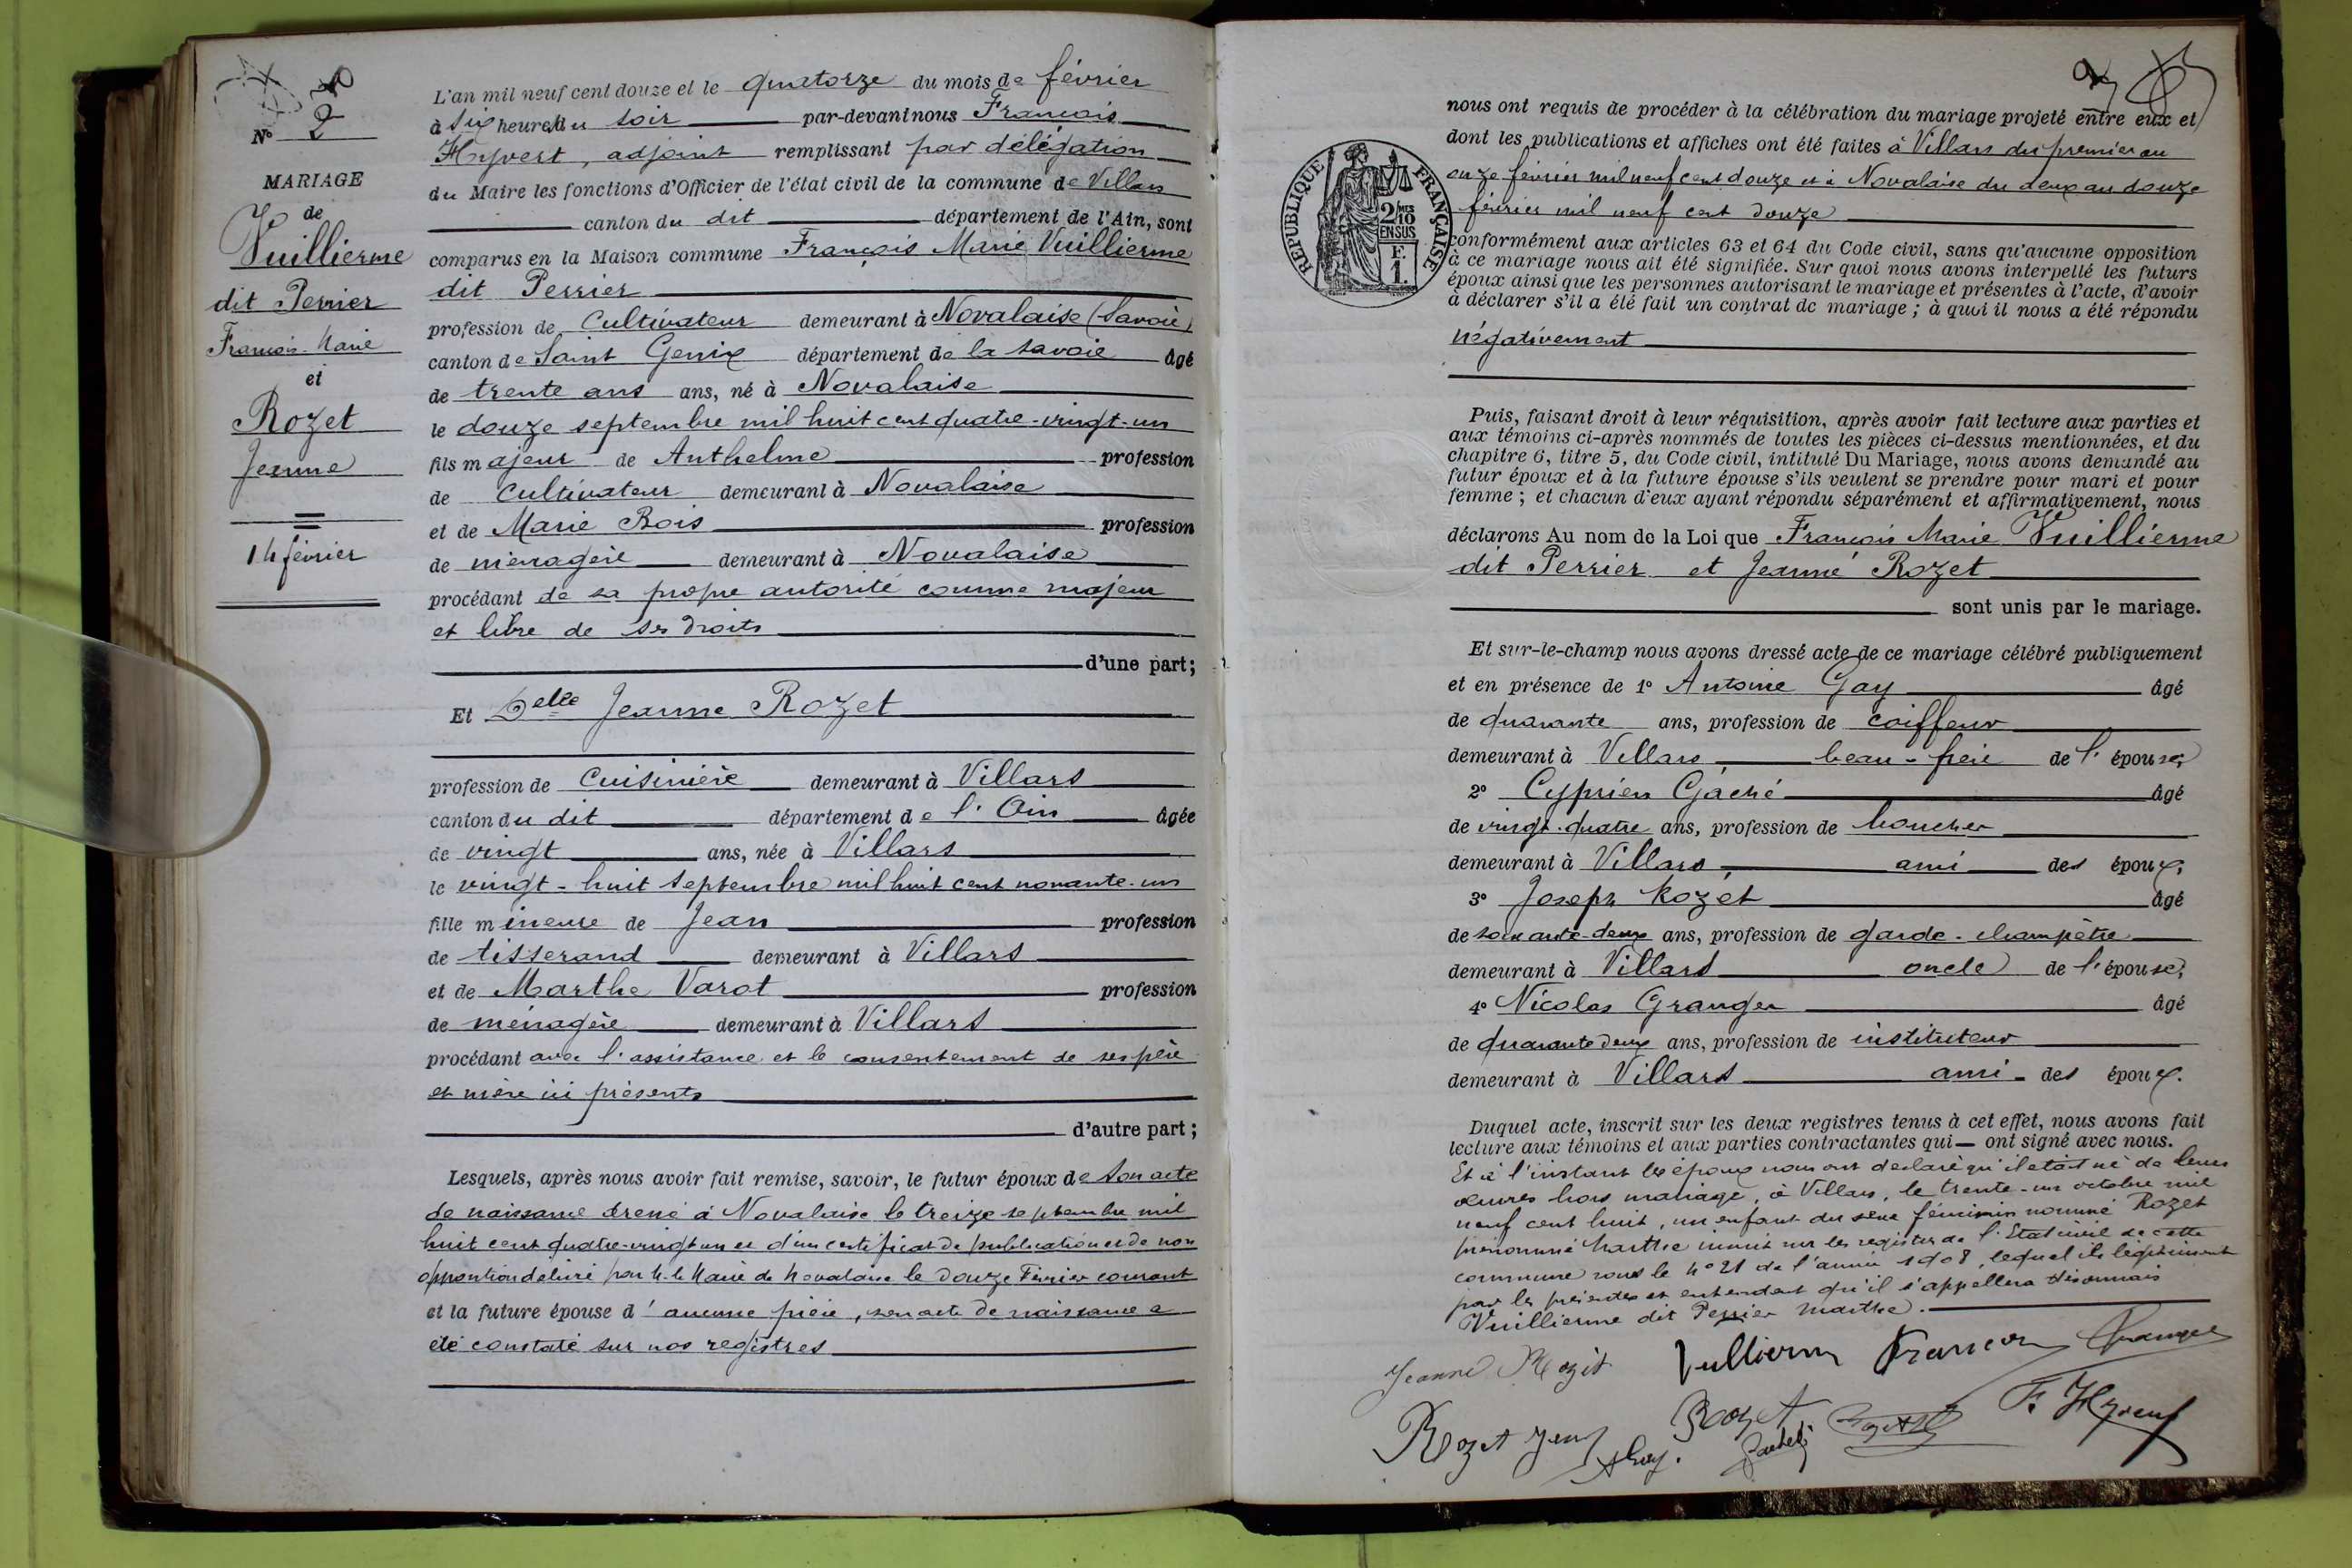 N° 2
MARIAGE
de
Vuillierme
dit Perrier
François-Marie
et
Rozet
Jeanne
14 février
L'an mil neuf cent douze et le quatorze du mois de février
à six heures du soir par-devant nous François
Hyvert, adjoint remplissant par délégation
du Maire les fonctions d'Officier de l'état civil de la commune de Villars
canton du dit département de l'Ain, sont
comparus en la Maison commune François Marie Vuillierme
dit Perrier
profession de Cultivateur demeurant à Novalaise (Savoie)
canton de Saint Genix département de la Savoie âgé
de trente ans ans, né à Novalaise
le douze septembre mil huit cent quatre-vingt-un
fils majeur de Anthelme profession
de Cultivateur demeurant à Novalaise
et de Marie Bois profession
de ménagère demeurant à Novalaise
procédant de sa propre autorité comme majeur
et libre de ses droits
d'une part;
Et Delle Jeanne Rozet
profession de Cuisinière demeurant à Villars
canton du dit département de l'Ain âgée
de vingt ans, née à Villars
le vingt-huit septembre mil huit cent nonante-un
fille mineure de Jean profession
de tisserand demeurant à Villars
et de Marthe Varot profession
de ménagère demeurant à Villars
procédant avec l'assistance et le consentement de ses père
et mère ici présents
d'autre part;
Lesquels, après nous avoir fait remise, savoir, le futur époux de son acte
de naissance dressé à Novalaise le treize septembre mil
huit cent quatre-vingt un et d'un certificat de publication et de non
opposition délivré par M. le Maire de Novalaise le douze Février courant
et la future épouse d'aucune pièce, son acte de naissance a
été constaté sur nos registres
2
nous ont requis de procéder à la célébration du mariage projeté entre eux et
dont les publications et affiches ont été faites à Villars du premier au
onze février mil neuf cent douze et à Novalaise du deux au douze
février mil neuf cent douze
RÉPUBLIQUE FRANÇAISE
2/10 MES
EN SUS
F.
1.
conformément aux articles 63 et 64 du Code civil, sans qu'aucune opposition
à ce mariage nous ait été signifiée. Sur quoi nous avons interpellé les futurs
époux ainsi que les personnes autorisant le mariage et présentes à l'acte, d'avoir
à déclarer s'il a été fait un contrat de mariage; à quoi il nous a été répondu
négativement
Puis, faisant droit à leur réquisition, après avoir fait lecture aux parties et
aux témoins ci-après nommés de toutes les pièces ci-dessus mentionnées, et du
chapitre 6, titre 5, du Code civil, intitulé Du Mariage, nous avons demandé au
futur époux et à la future épouse s'ils veulent se prendre pour mari et pour
femme; et chacun d'eux ayant répondu séparément et affirmativement, nous
déclarons Au nom de la Loi que François Marie Vuillierme
dit Perrier et Jeanne Rozet
sont unis par le mariage.
Et sur-le-champ nous avons dressé acte de ce mariage célébré publiquement
et en présence de 1° Antoine Gay âgé
de quarante ans, profession de coiffeur
demeurant à Villars beau-frère de l'épouse;
2° Cyprien Gâché âgé
de vingt-quatre ans, profession de boucher
demeurant à Villars, ami des époux;
3° Joseph Rozet âgé
de soixante-deux ans, profession de garde-champêtre
demeurant à Villars oncle de l'épouse;
4° Nicolas Granger âgé
de quarante deux ans, profession de instituteur
demeurant à Villars ami des époux.
Duquel acte, inscrit sur les deux registres tenus à cet effet, nous avons fait
lecture aux témoins et aux parties contractantes qui — ont signé avec nous.
Et à l'instant les époux nous ont déclaré qu'il était né de leurs
œuvres hors mariage, à Villars, le trente-un octobre mil
neuf cent huit, un enfant du sexe féminin nommé Rozet
prénommé Marthe inscrit sur les registres de l'Etat civil de cette
commune sous le N° 21 de l'année 1908, lequel ils légitiment
par les présentes et entendent qu'il s'appellera désormais
Vuillierme dit Perrier Marthe.
Jeanne Rozet Vullierm François Granger
Rozet Jean A Gay. Rozet Gâché F. Hyvert